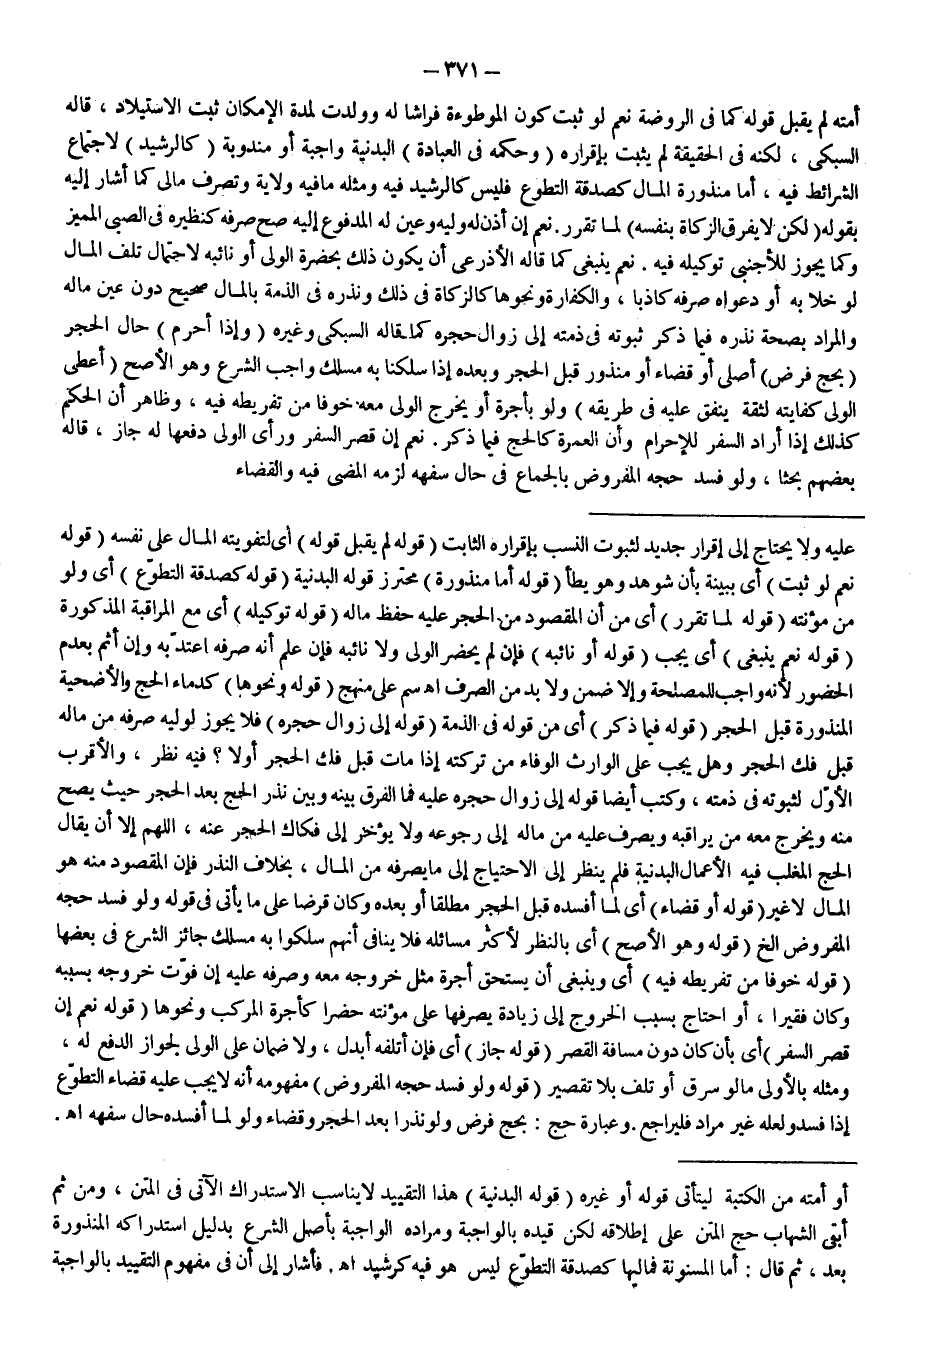 – ٣٧١ –
أمته لم يقبل قوله كما فى الروضة نعم لو ثبت كون الموطوءة فراشا له وولدت لمدة الإمكان ثبت الاستيلاد ، قاله
السبكى ، لكنه فى الحقيقة لم يثبت بإقراره ( وحكمه فى العبادة ) البدنية واجبة أو مندوبة ( كالرشيد ) لاجتماع
الشرائط فيه ، أما منذورة المال كصدقة التطوع فليس كالرشيد فيه ومثله مافيه ولاية وتصرف مالى كما أشار إليه
بقوله( لكن لايفرق الزكاة بنفسه) لما تقرر. نعم إن أذن له وليه وعين له المدفوع إليه صح صرفه كنظيره فى الصبى المميز
وكما يجوز للأجنبى توكيله فيه . نعم ينبغى كما قاله الأذرعى أن يكون ذلك بحضرة الولى أو نائبه لاحتمال تلف المال
لو خلا به أو دعواه صرفه كاذبا ، والكفارةونحوها كالزكاة فى ذلك ونذره فى الذمة بالمال صحيح دون عين ماله
والمراد بصحة نذره فيما ذكر ثبوته فى ذمته إلى زوال حجره كما قاله السبكى وغيره ( وإذا أحرم ) حال الحجر
( بحج فرض) أصلى أو قضاء أو منذور قبل الحجر وبعده إذا سلكنا به مسلك واجب الشرع وهو الأصح ( أعطى
الولى كفايته لثقة ينفق عليه فى طريقه ) ولو بأجرة أو يخرج الولى معه خوفا من تفريطه فيه ، وظاهر أن الحكم
كذلك إذا أراد السفر للإحرام وأن العمرة كالحج فيما ذكر . نعم إن قصر السفر ورأى الولى دفعها له جاز ، قاله
بعضهم بحثا ، ولو فسد حجه المفروض بالجماع فى حال سفهه لزمه المضى فيه والقضاء
عليه ولا يحتاج إلى إقرار جديد لثبوت النسب بإقراره الثابت ( قوله لم يقبل قوله ) أى لتفويته المال على نفسه ( قوله
نعم لو ثبت ) أى ببينة بأن شوهد وهو يطأ ( قوله أما منذورة ) محترز قوله البدنية ( قوله كصدقة التطوّع ) أى ولو
من مؤنته ( قوله لما تقرر ) أى من أن المقصود من الحجر عليه حفظ ماله ( قوله توكيله ) أى مع المراقبة المذكورة
( قوله نعم ينبغى ) أى يجب ( قوله أو نائبه ) فإن لم يحضر الولى ولا نائبه فإن علم أنه صرفه اعتدّ به وإن أثم بعدم
الحضور لأنه واجب للمصلحة وإلا ضمن ولا بد من الصرف اه سم على منهج ( قوله ونحوها ) كدماء الحج والأضحية
المنذورة قبل الحجر ( قوله فيما ذكر ) أى من قوله فى الذمة ( قوله إلى زوال حجره ) فلا يجوز لوليه صرفه من ماله
قبل فك الحجر وهل يجب على الوارث الوفاء من تركته إذا مات قبل فك الحجر أولا ؟ فيه نظر ، والأقرب
الأوّل لثبوته فى ذمته ، وكتب أيضا قوله إلى زوال حجره عليه فما الفرق بينه وبين نذر الحج بعد الحجر حيث يصح
منه ويخرج معه من يراقبه ويصرف عليه من ماله إلى رجوعه ولا يؤخر إلى فكاك الحجر عنه ، اللهم إلا أن يقال
الحج المغلب فيه الأعمال البدنية فلم ينظر إلى الاحتياج إلى مايصرفه من المال ، بخلاف النذر فإن المقصود منه هو
المال لاغير ( قوله أو قضاء ) أى لما أفسده قبل الحجر مطلقا أو بعده وكان قرضا على ما يأتى فى قوله ولو فسد حجه
المفروض الخ ( قوله وهو الأصح ) أى بالنظر لأكثر مسائله فلا ينافى أنهم سلكوا به مسلك جائز الشرع فى بعضها
( قوله خوفا من تفريطه فيه ) أى وينبغى أن يستحق أجرة مثل خروجه معه وصرفه عليه إن فوّت خروجه بسببه
وكان فقيرا ، أو احتاج بسبب الخروج إلى زيادة يصرفها على مؤنته حضرا كأجرة المركب ونحوها ( قوله نعم إن
قصر السفر )أى بأن كان دون مسافة القصر ( قوله جاز ) أى فإن أتلفه أبدل ، ولا ضمان على الولى لجواز الدفع له ،
ومثله بالأولى مالو سرق أو تلف بلا تقصير ( قوله ولو فسد حجه المفروض ) مفهومه أنه لايجب عليه قضاء التطوّع
إذا فسد ولعله غير مراد فليراجع . وعبارة حج : بحج فرض ولو نذرا بعد الحجر وقضاء ولو لما أفسده حال سفهه اه .
أو أمته من الكتبة ليتأتى قوله أو غيره ( قوله البدنية ) هذا التقييد لايناسب الاستدراك الآتى فى المتن ، ومن ثم
أبقى الشهاب حج المتن على إطلاقه لكن قيده بالواجبة ومراده الواجبة بأصل الشرع بدليل استدراكه المنذورة
بعد ، ثم قال : أما المسنونة فماليها كصدقة التطوّع ليس هو فيه كرشيد اه . فأشار إلى أن فى مفهوم التقييد بالواجبة